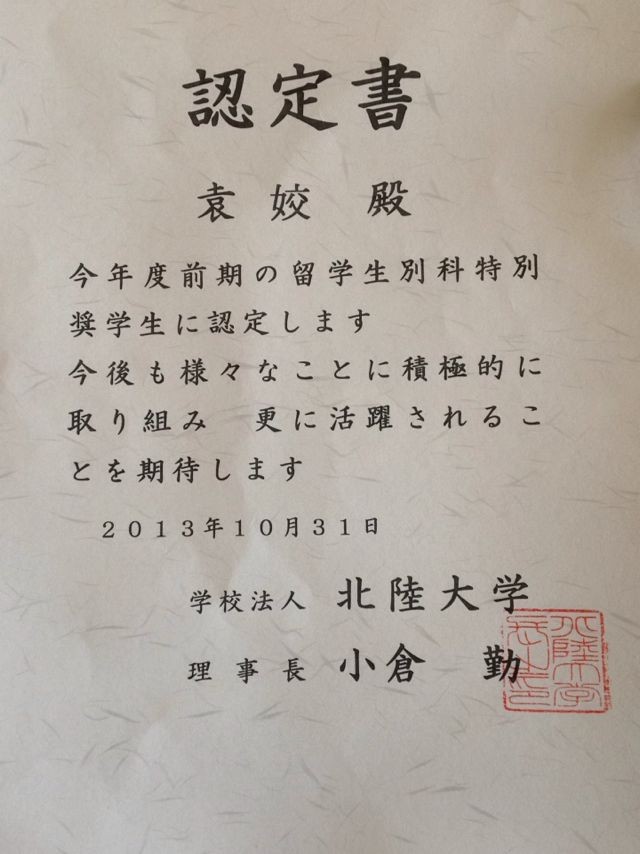 認定書
袁 姣 殿
今年度前期の留学生別科特別
奨学生に認定します
今後も様々なことに積極的に
取り組み 更に活躍されるこ
とを期待します
２０１３年１０月３１日
学校法人 北陸大学
理事長 小倉 勤
北陸大学